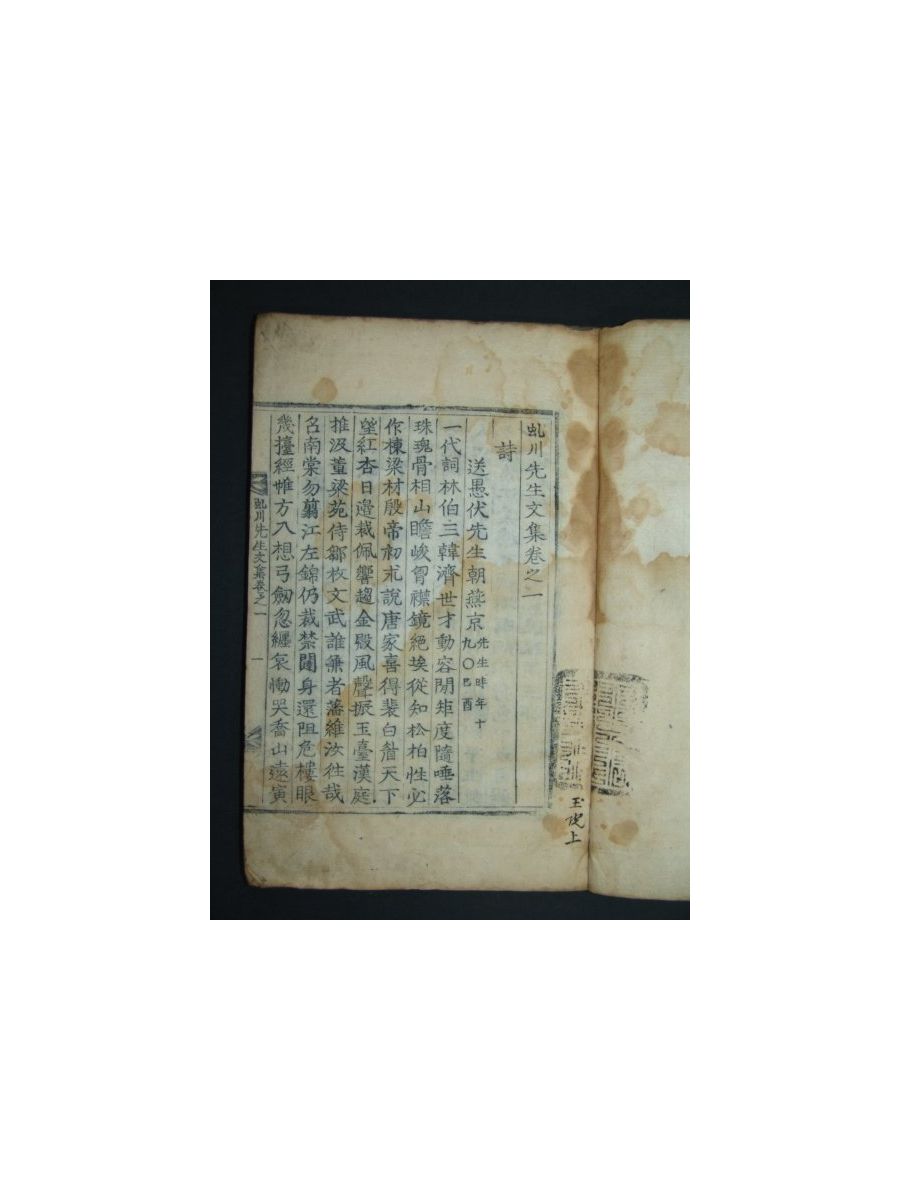 虬川先生文集卷之一
詩
送愚伏先生朝燕京 先生時年十九〇己酉
一代詞林伯三韓濟世才動容閒矩度隨唾落
珠瑰骨相山瞻峻胷襟鏡絕埃從知松柏性必
作棟梁材殷帝初求說唐家喜得裴白眉天下
望紅杏日邊栽佩響趨金殿風聲振玉臺漢庭
推汲董梁苑侍鄒枚文武誰兼者藩維汝往哉
召南棠勿翦江左錦仍裁禁闥身還阻危樓眼
幾擡經帷方入想弓劒忽纏哀慟哭喬山遠寅
虬川先生文集卷之一
一
上